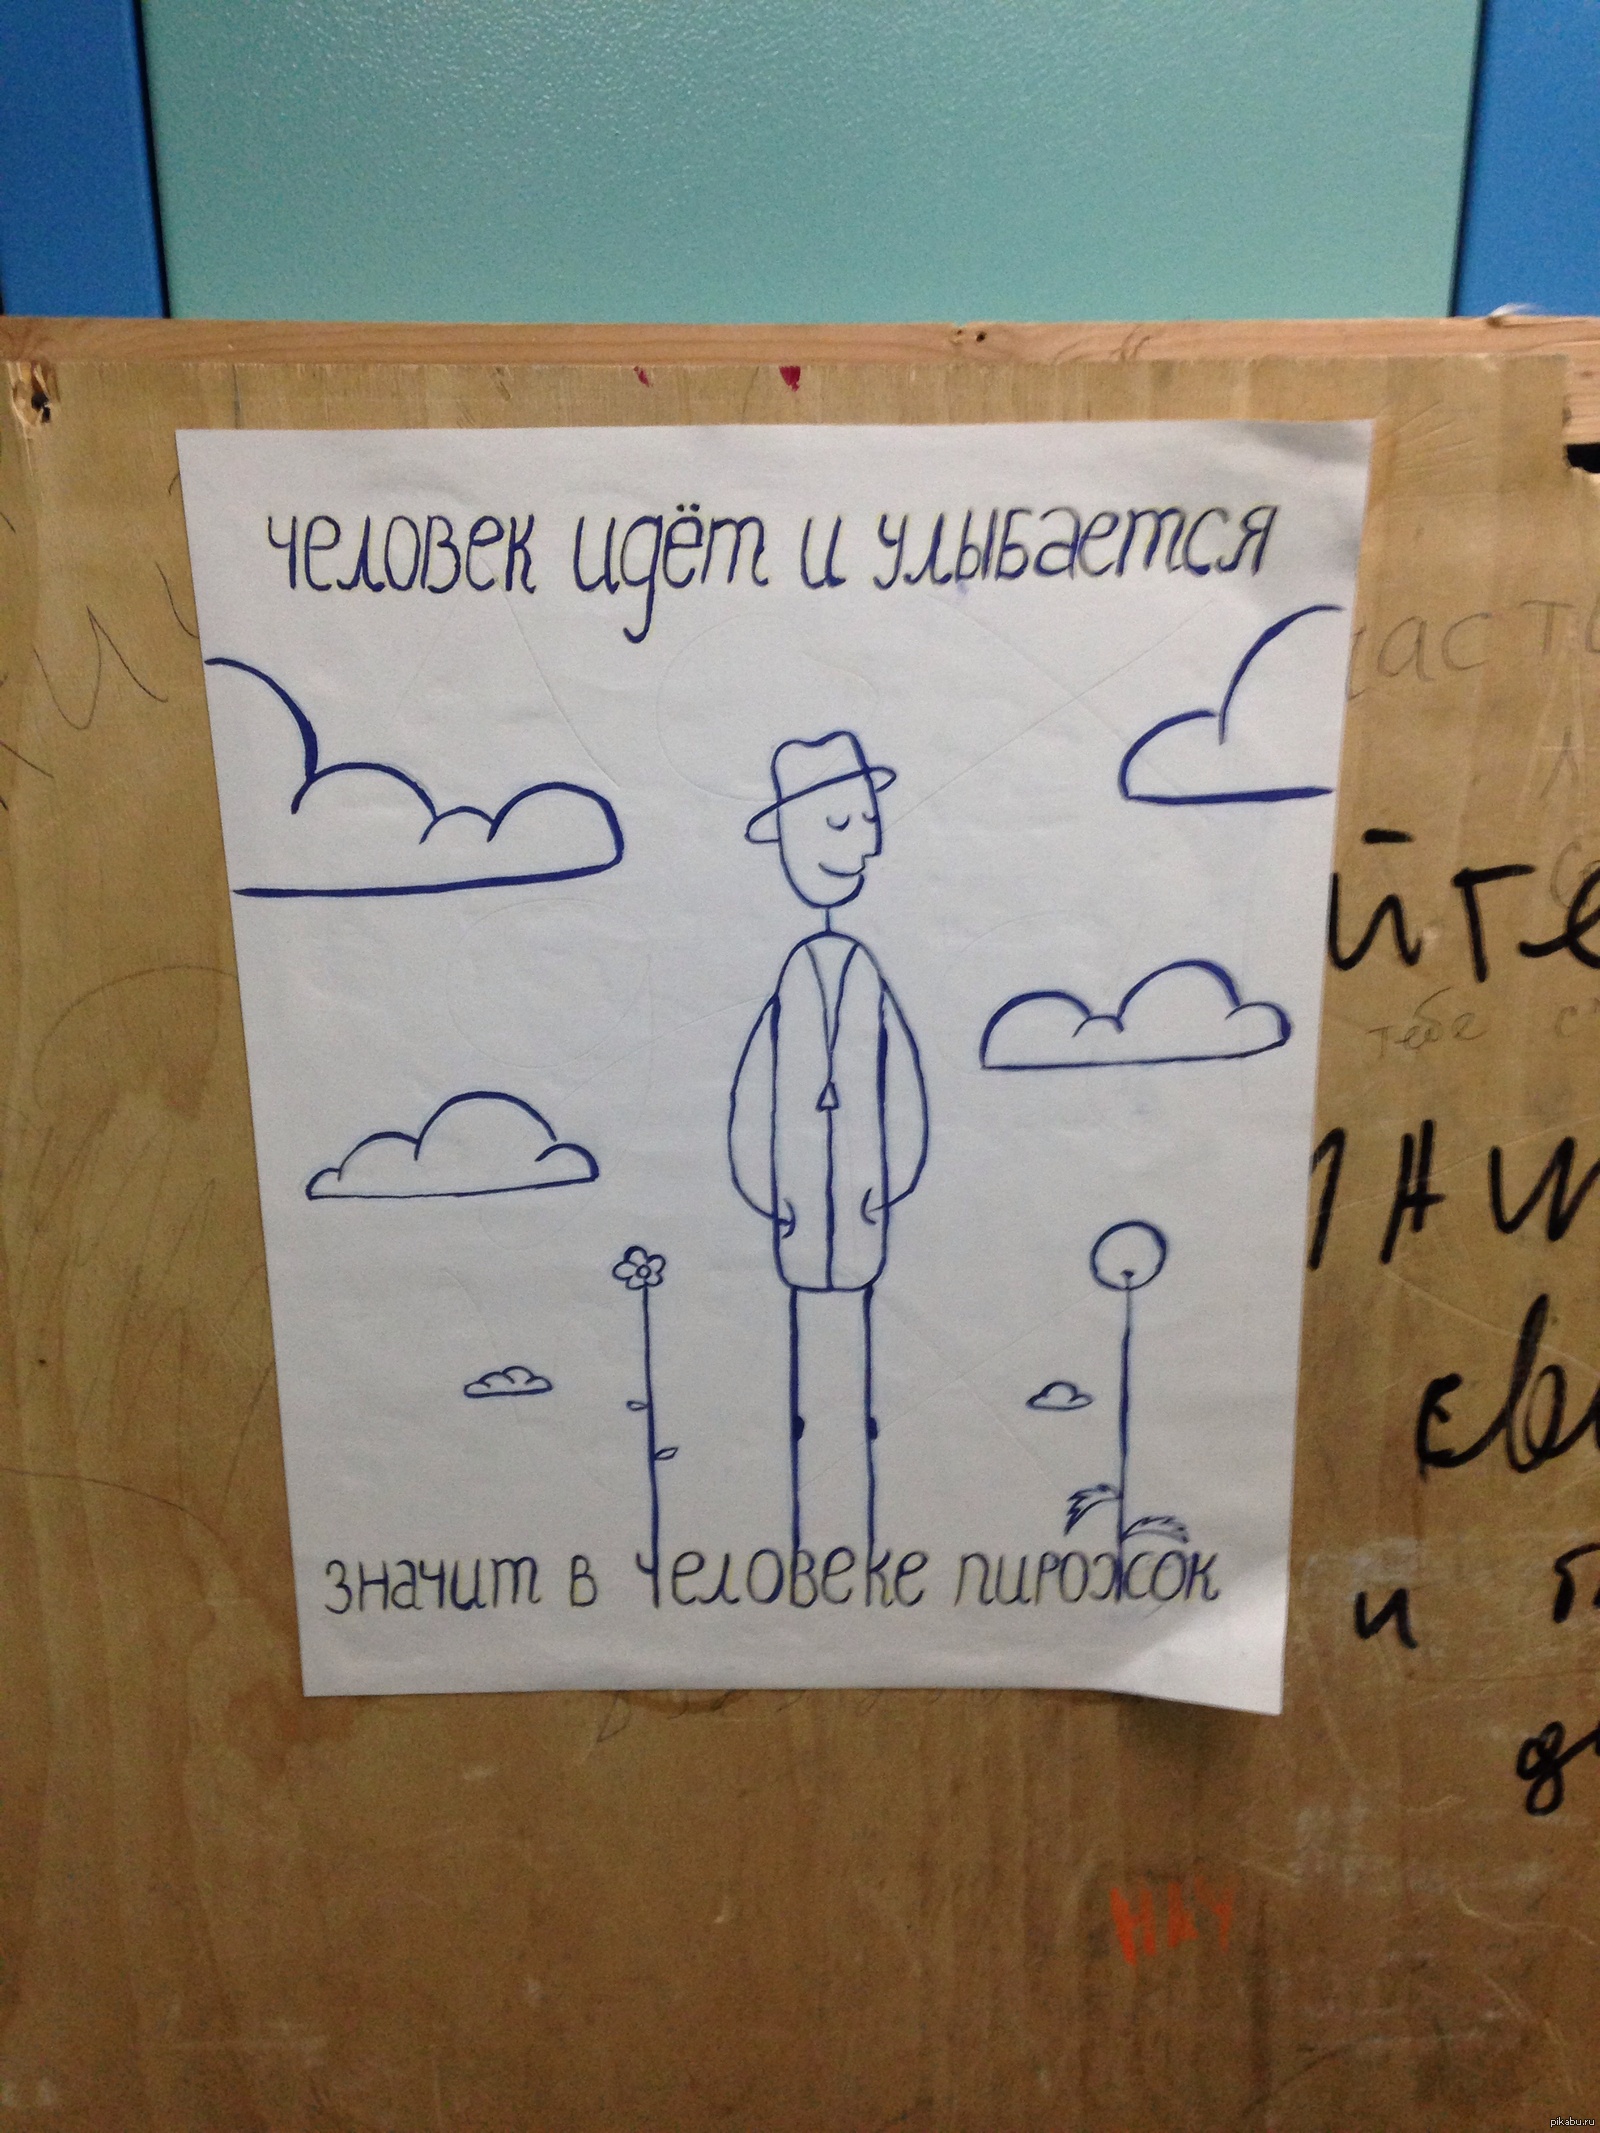 человек идёт и улыбается
значит в человеке пирожок
тебе
и
НАУ
pikabu.ru